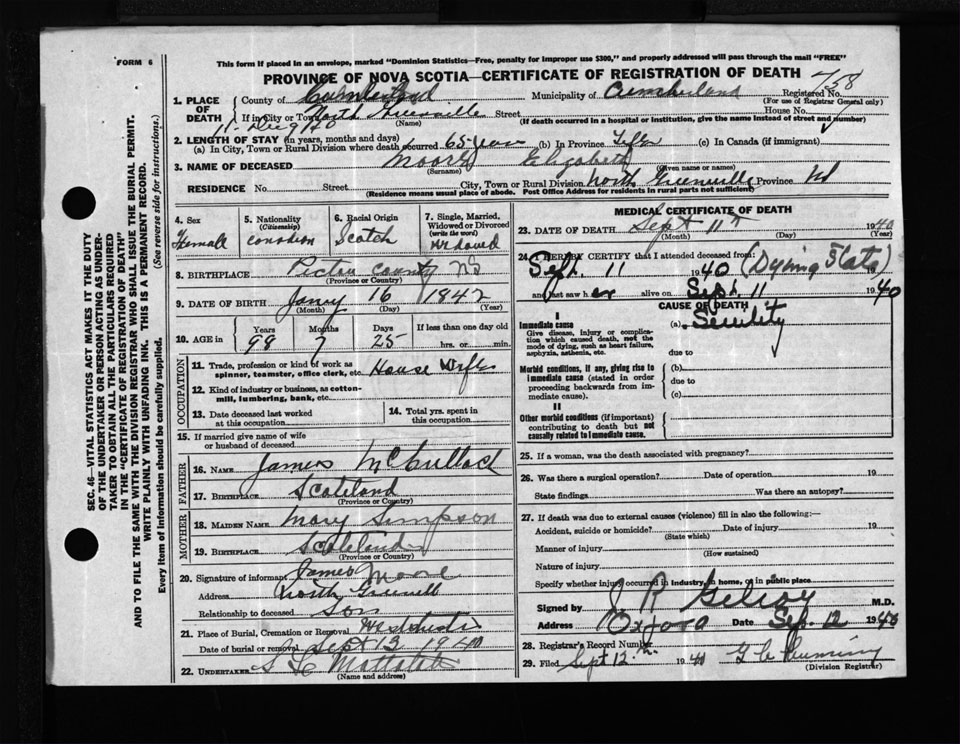 FORM 6
This form if placed in an envelope, marked "Dominion Statistics—Free, penalty for improper use $300," and properly addressed will pass through the mail "FREE"
PROVINCE OF NOVA SCOTIA—CERTIFICATE OF REGISTRATION OF DEATH
1. PLACE OF DEATH
County of Cumberland Municipality of Cumberland Registered No. 758
(For use of Registrar General only)
If in City or Town North Street House No.
(Name) (If death occurred in a hospital or institution, give the name instead of street and number)
2. LENGTH OF STAY (in years, months and days)
(a) In City, Town or Rural Division where death occurred 65 years (b) in Province (c) In Canada (if immigrant)
3. NAME OF DECEASED Moore Elizabeth
(Surname) (Given name or names)
RESIDENCE No. Street City, Town or Rural Division North Greenville Province
(Residence means usual place of abode. Post Office Address for residents in rural parts not sufficient)
SEC. 46—VITAL STATISTICS ACT MAKES IT THE DUTY
OF THE UNDERTAKER OR PERSON ACTING AS UNDER-
TAKER TO OBTAIN ALL THE PARTICULARS REQUIRED
IN THE "CERTIFICATE OF REGISTRATION OF DEATH"
AND TO FILE THE SAME WITH THE DIVISION REGISTRAR WHO SHALL ISSUE THE BURIAL PERMIT.
WRITE PLAINLY WITH UNFADING INK. THIS IS A PERMANENT RECORD.
Every item of Information should be carefully supplied. (See reverse side for instructions.)
4. Sex Femall
5. Nationality (Citizenship) canadian
6. Racial Origin Scotch
7. Single, Married, Widowed or Divorced (write the word)
8. BIRTHPLACE Pictou County NS
(Province or Country)
9. DATE OF BIRTH Janry 16 1842
(Month) (Day) (Year)
10. AGE in Years 98 Months 7 Days 25 If less than one day old hrs. or min.
OCCUPATION
11. Trade, profession or kind of work as spinner, teamster, office clerk, etc. House Wife
12. Kind of industry or business, as cotton-mill, lumbering, bank, etc.
13. Date deceased last worked at this occupation
14. Total yrs. spent in this occupation
15. If married give name of wife or husband of deceased
FATHER
16. NAME James McCullock
17. BIRTHPLACE Scoteland
(Province or Country)
MOTHER
18. MAIDEN NAME Mary Simpson
19. BIRTHPLACE
(Province or Country)
20. Signature of informant James Moore
Address North
Relationship to deceased Son
21. Place of Burial, Cremation or Removal
Date of burial or removal Sept 13 1940
22. UNDERTAKER
(Name and address)
MEDICAL CERTIFICATE OF DEATH
23. DATE OF DEATH Sept 11th 1940
(Month) (Day) (Year)
24. I HEREBY CERTIFY that I attended deceased from:
Sept. 11 1940 (Dying State) 19
and last saw her alive on Sept. 11 1940
CAUSE OF DEATH
I
Immediate cause (a) Senility
Give disease, injury or complication which caused death, not the mode of dying, such as heart failure, asphyxia, asthenia, etc.
due to
Morbid conditions, if any, giving rise to immediate cause (stated in order proceeding backwards from immediate cause).
(b)
due to
(c)
II
Other morbid conditions (if important) contributing to death but not causally related to immediate cause.
25. If a woman, was the death associated with pregnancy?
26. Was there a surgical operation? Date of operation 19
State findings Was there an autopsy?
27. If death was due to external causes (violence) fill in also the following:—
Accident, suicide or homicide? Date of injury 19
(State which)
Manner of injury
(How sustained)
Nature of injury
Specify whether injury occurred in industry, in home, or in public place
Signed by M.D.
Address Oxford Date Sep. 12 1940
28. Registrar's Record Number
29. Filed Sept 12th 1940
(Division Registrar)